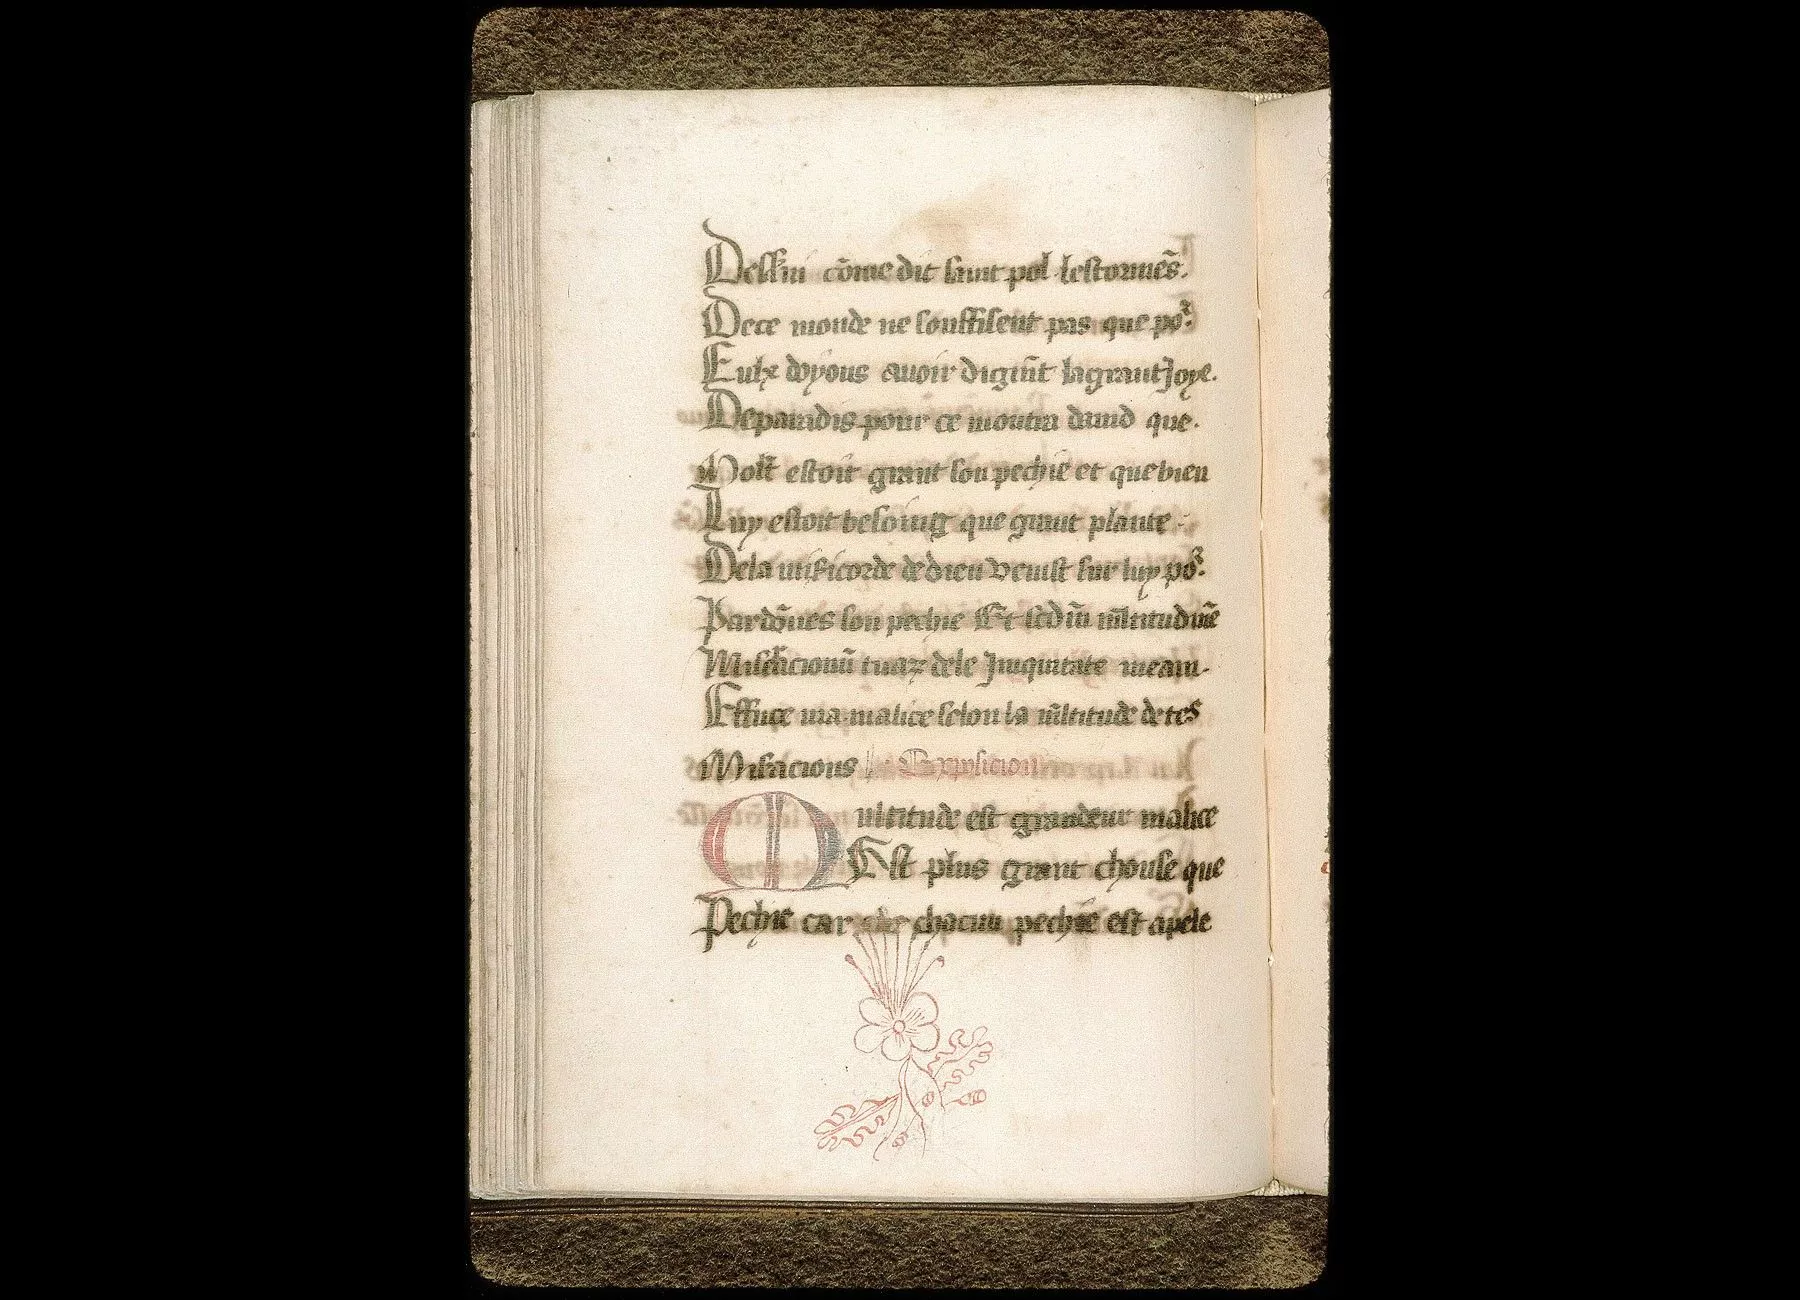 Dessui cõme dit saint pol les tormẽs.
De ce monde ne souffisent pas que poᷣ.
Eulx doyons avoir digmt la grant Joye.
De paradis pour ce moutra dauid que.
Molt estoit grant son pechie et que bien
Luy estoit besoing que grant plante
De la mĩsicorde de dieu venist sur luy poᷣ.
Pardõnes son pechie Et scdm̃ ml̃titudinẽ
Miseracionũ tuaꝝ dele Jniquitate meam.
Efface ma malice selon la ml̃titude de tes
Miseracions Exposicion
Multitude est grandeur malice
Est plus grant chouse que
Pechie car chacun pechie est apele